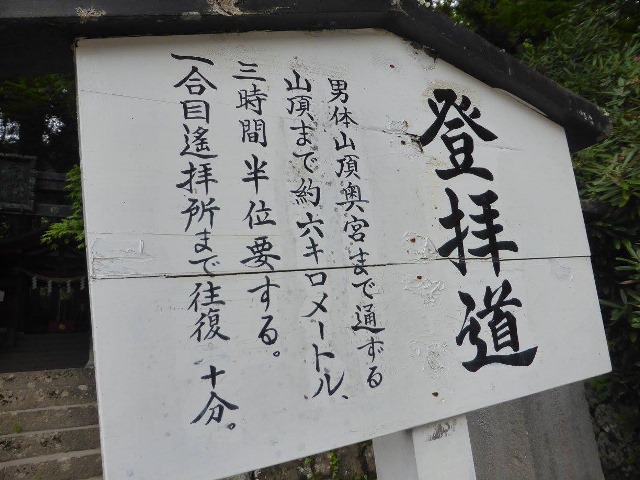 登拝道
男体山頂奥宮まで通ずる
山頂まで約六キロメートル、
三時間半位要する。
一合目遙拝所まで往復 十分。